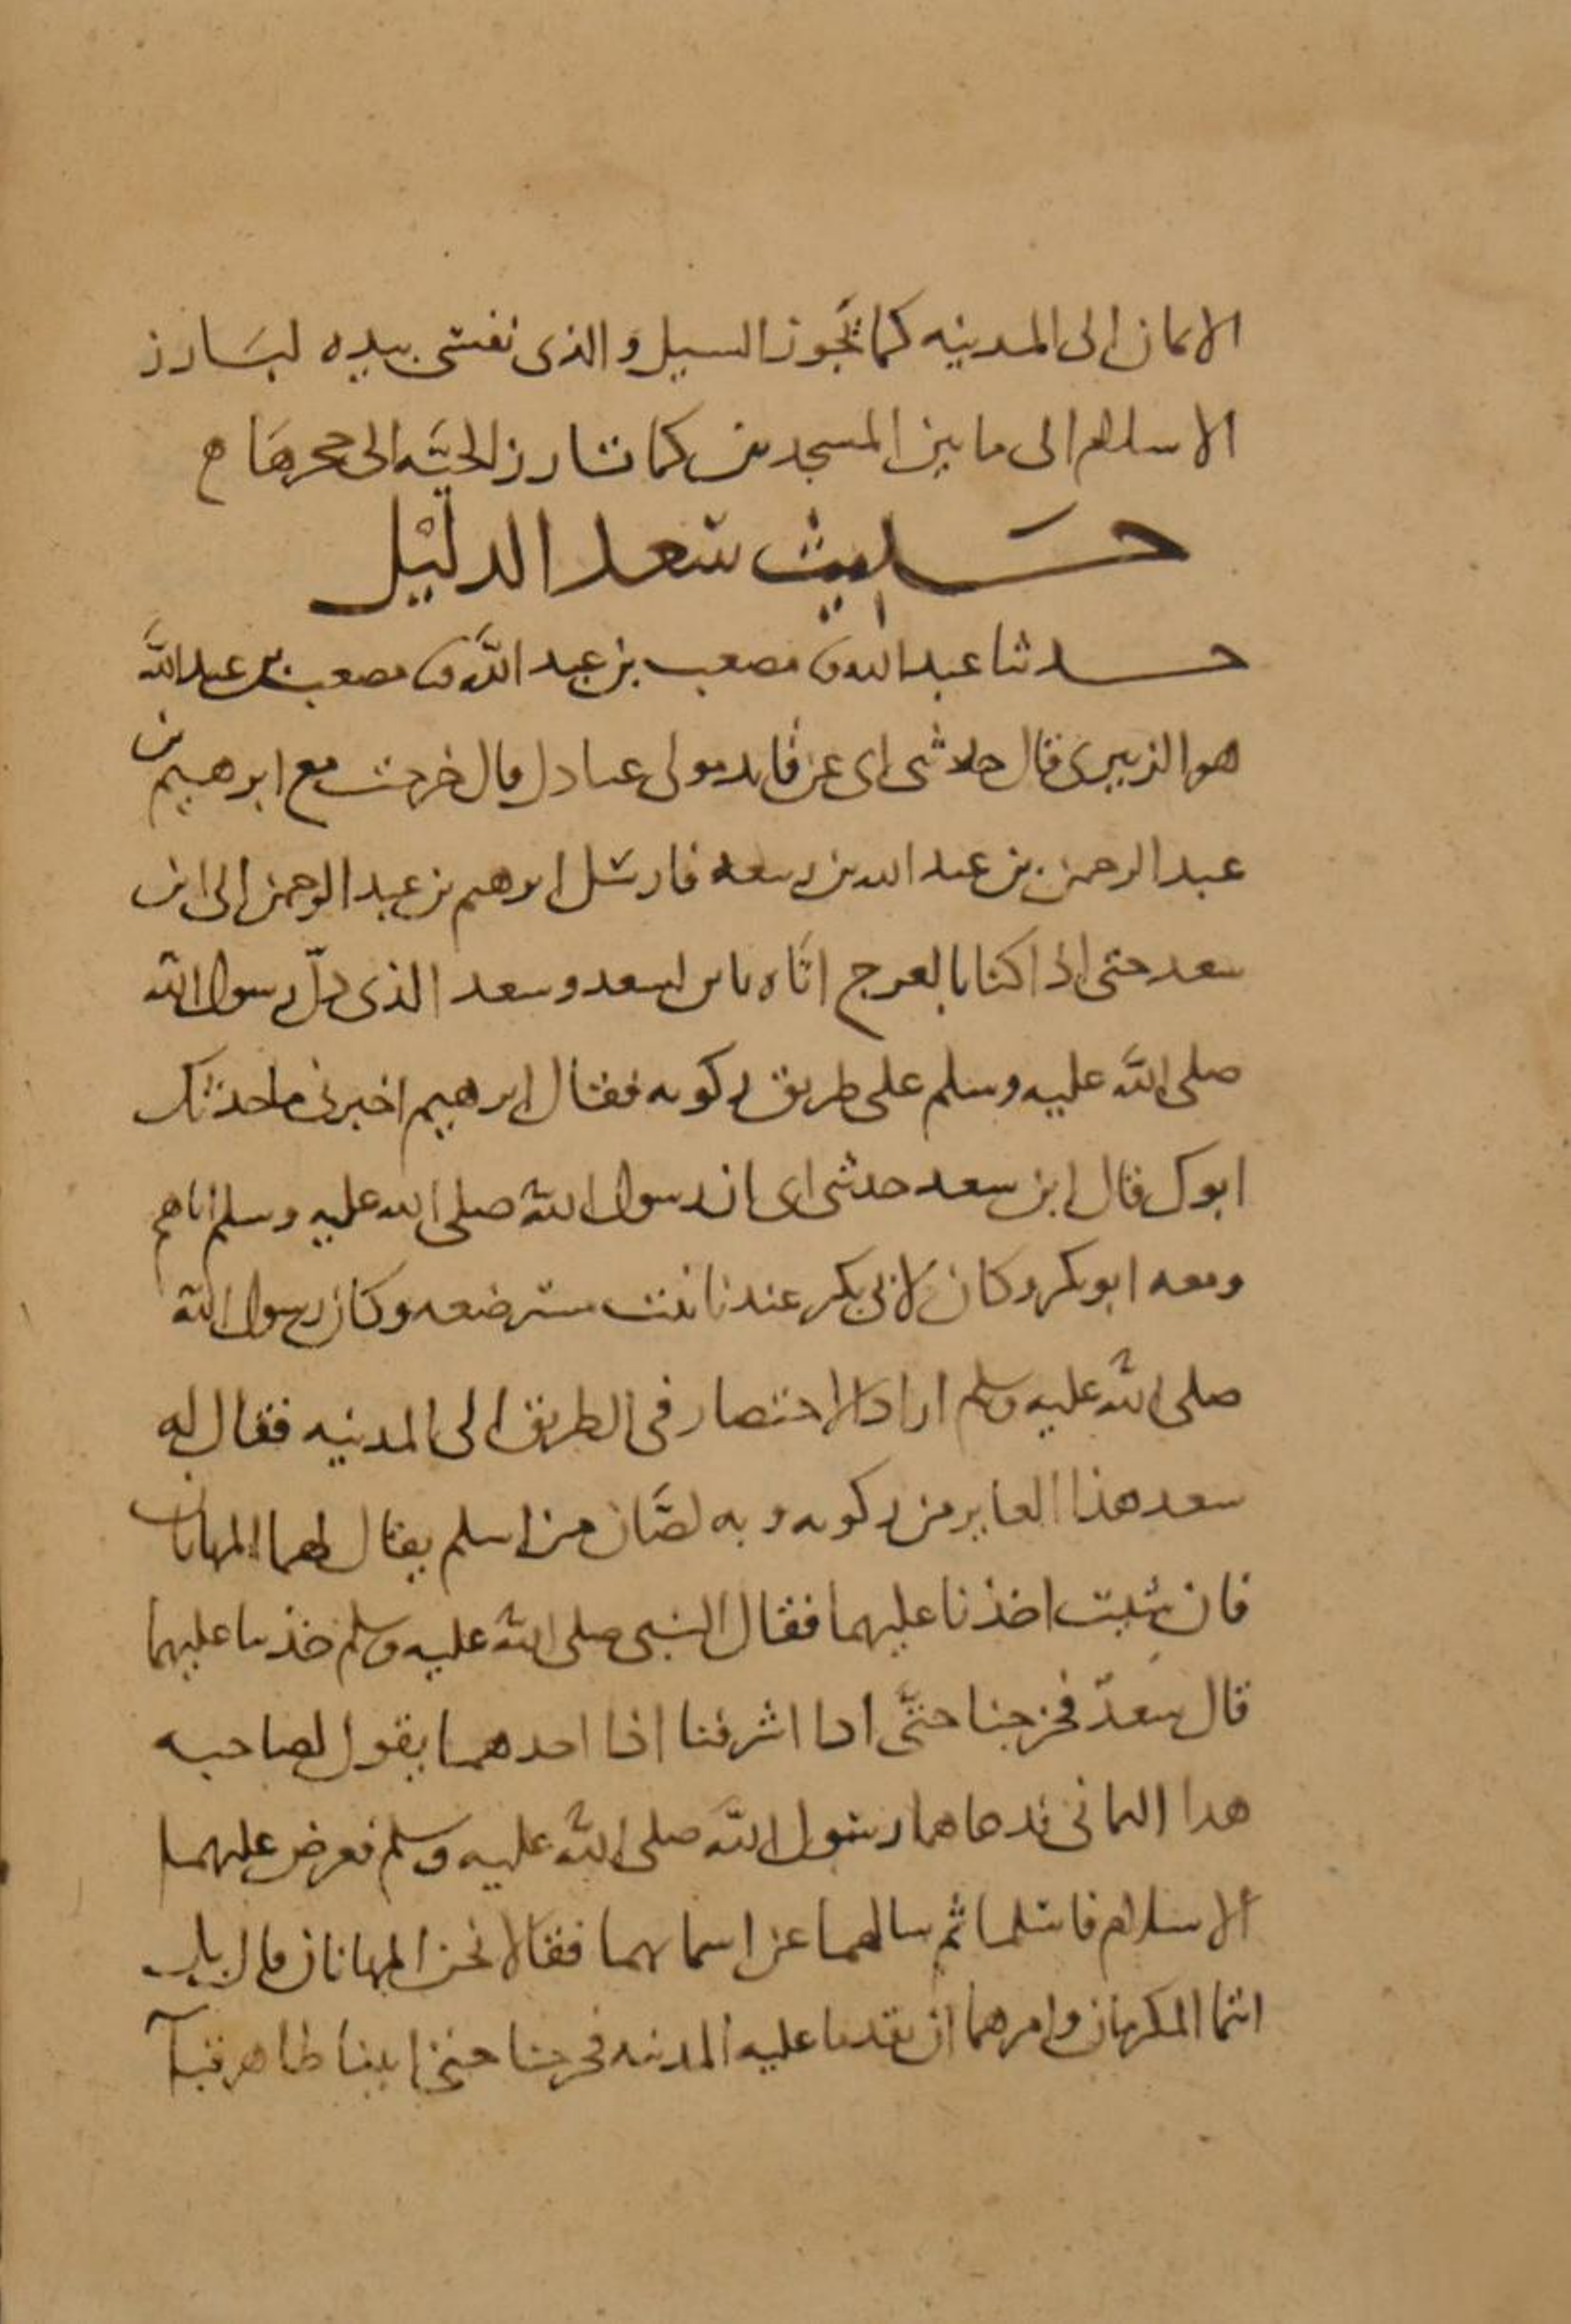 الايمان الى المدينه كما تَجُوز السيل و الذى نفسى بيده ليَارز
الاسلام الى ما بين المسجدين كما تارز الحيَّه الى حجرهَا
حَديث سَعد الدليْل
حدثنا عبد الله مصعب بن عبد الله مصعب بن عبد الله
هو الزبيرى قال حدثنى ابى عن فايد مولى عبادل قال خرجت مع ابرهيم بن
عبد الرحمن بن عبد الله بن ربيعه فارسَل ابرهيم بن عبد الرحمن الى ابن
سعد حتى اذا كنا بالعرج اتَاه ابن لسعد وسعد الذى دلّ رسول الله
صلى الله عليه وسلم على طريق ركوبه فقال ابرهيم اخبرنى ما حدثك
ابوك قال ابن سعد حدثنى ابى ان رسول الله صلى الله عليه وسلم اتاهم
ومعه ابو بكر وكان لابى بكر عندنا بنت مسترضعه وكان رسول الله
صلى الله عليه وسلم اراد الاختصار فى الطريق الى المدينه فقال له
سعد هذا الغاير من ركوبه وبه لصَّان من اسلم يقال لهما المهانان
فان شيت اخذنا عليهما فقال النبى صلى الله عليه وسلم خذ بنا عليهما
قال سعدٌ فخرجنا حتَّى اذا اشرفنا اذا احدهما يقول لصاحبه
هذا اليمانى فدعاهما رسَول الله صلى الله عليه وسلم فعرض عليهما
الاسلام فاسَلما ثم سالهما عن اسمايهما فقالا نحن المهانان قال بل
انتما المكرمان وامرهما ان يقدما عليه المدينه فخرجنا حتى اتينا ظاهر قبآ